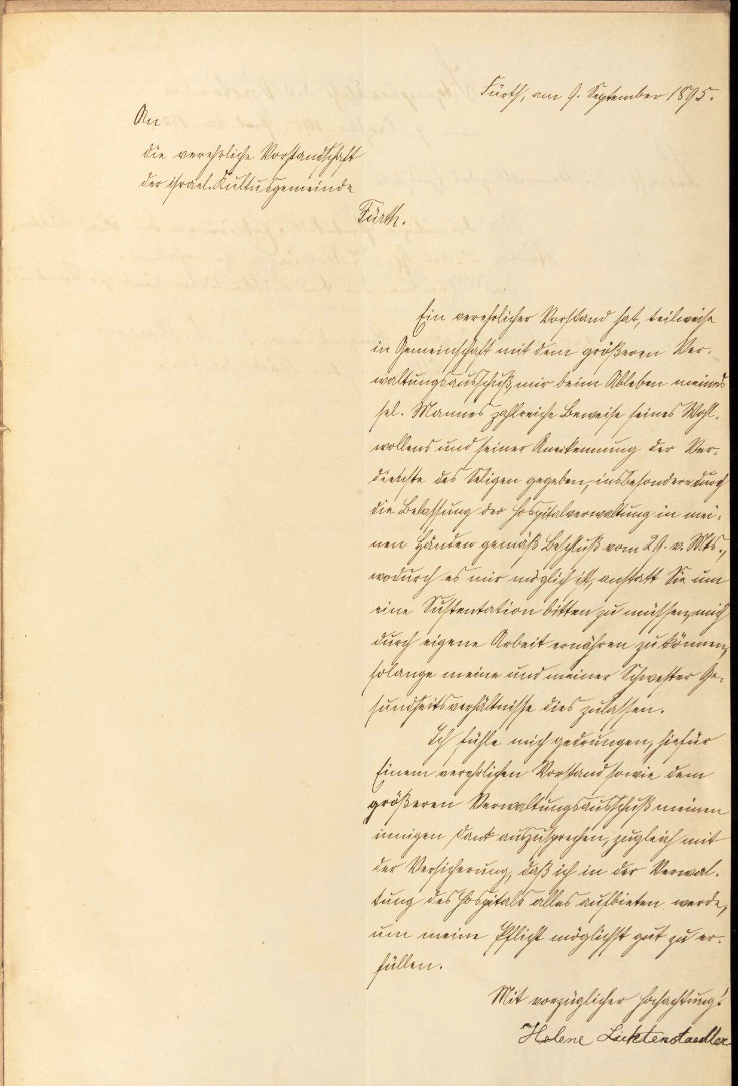 Fürth, am 9. September 1895.
An
die verehrliche Vorstandschaft
der israel. Kultusgemeinde
Fürth.
Ein verehrlicher Vorstand hat, teilweise
in Gemeinschaft mit dem größeren Ver-
waltungsausschuß mir beim Ableben meines
sel. Mannes zahlreiche Beweise seines Wohl-
wollens und seiner Anerkennung der Ver-
dienste des Seligen gegeben, insbesondere durch
die Belassung der Hospitalverwaltung in mei-
nen Händen gemäß Beschluß vom 29. v. Mts.,
wodurch es mir möglich ist, anstatt Sie um
eine Sustentation bitten zu müssen, mich
durch eigene Arbeit ernähren zu können,
solange meine und meiner Schwester Ge-
sundheitsverhältnisse dies zulassen.
Ich fühle mich gedrungen, hiefür
Einem verehrlichen Vorstand sowie dem
größeren Verwaltungsausschuß meinen
innigen Dank auszusprechen, zugleich mit
der Versicherung, daß ich in der Verwal-
tung des Hospitals alles aufbieten werde,
um meine Pflicht möglichst gut zu er-
füllen.
Mit vorzüglicher Hochachtung!
Helene Lichtenstaedter